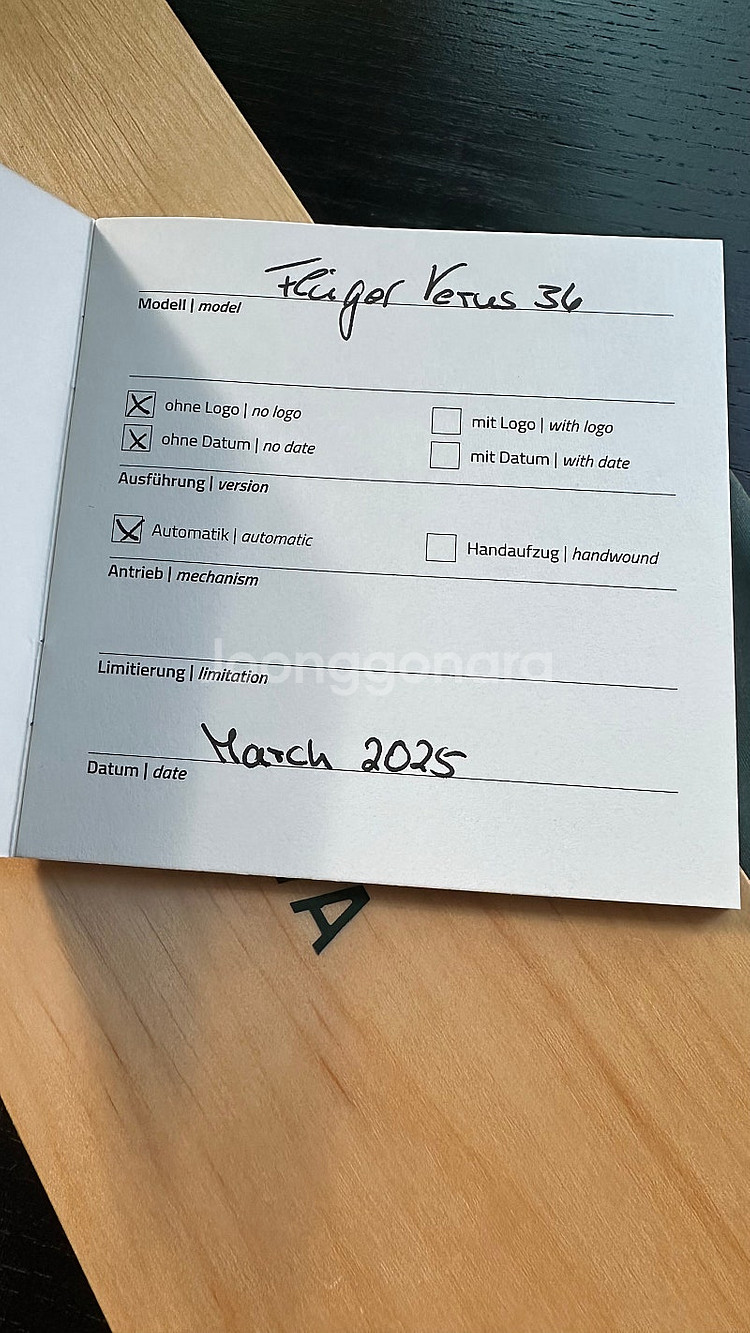 Flieger Verus 36
Modell | model
ohne Logo | no logo
mit Logo | with logo
ohne Datum | no date
mit Datum | with date
Ausführung | version
Automatik | automatic
Handaufzug | handwound
Antrieb | mechanism
Joonggonara
Limitierung | limitation
March 2025
Datum | date
A